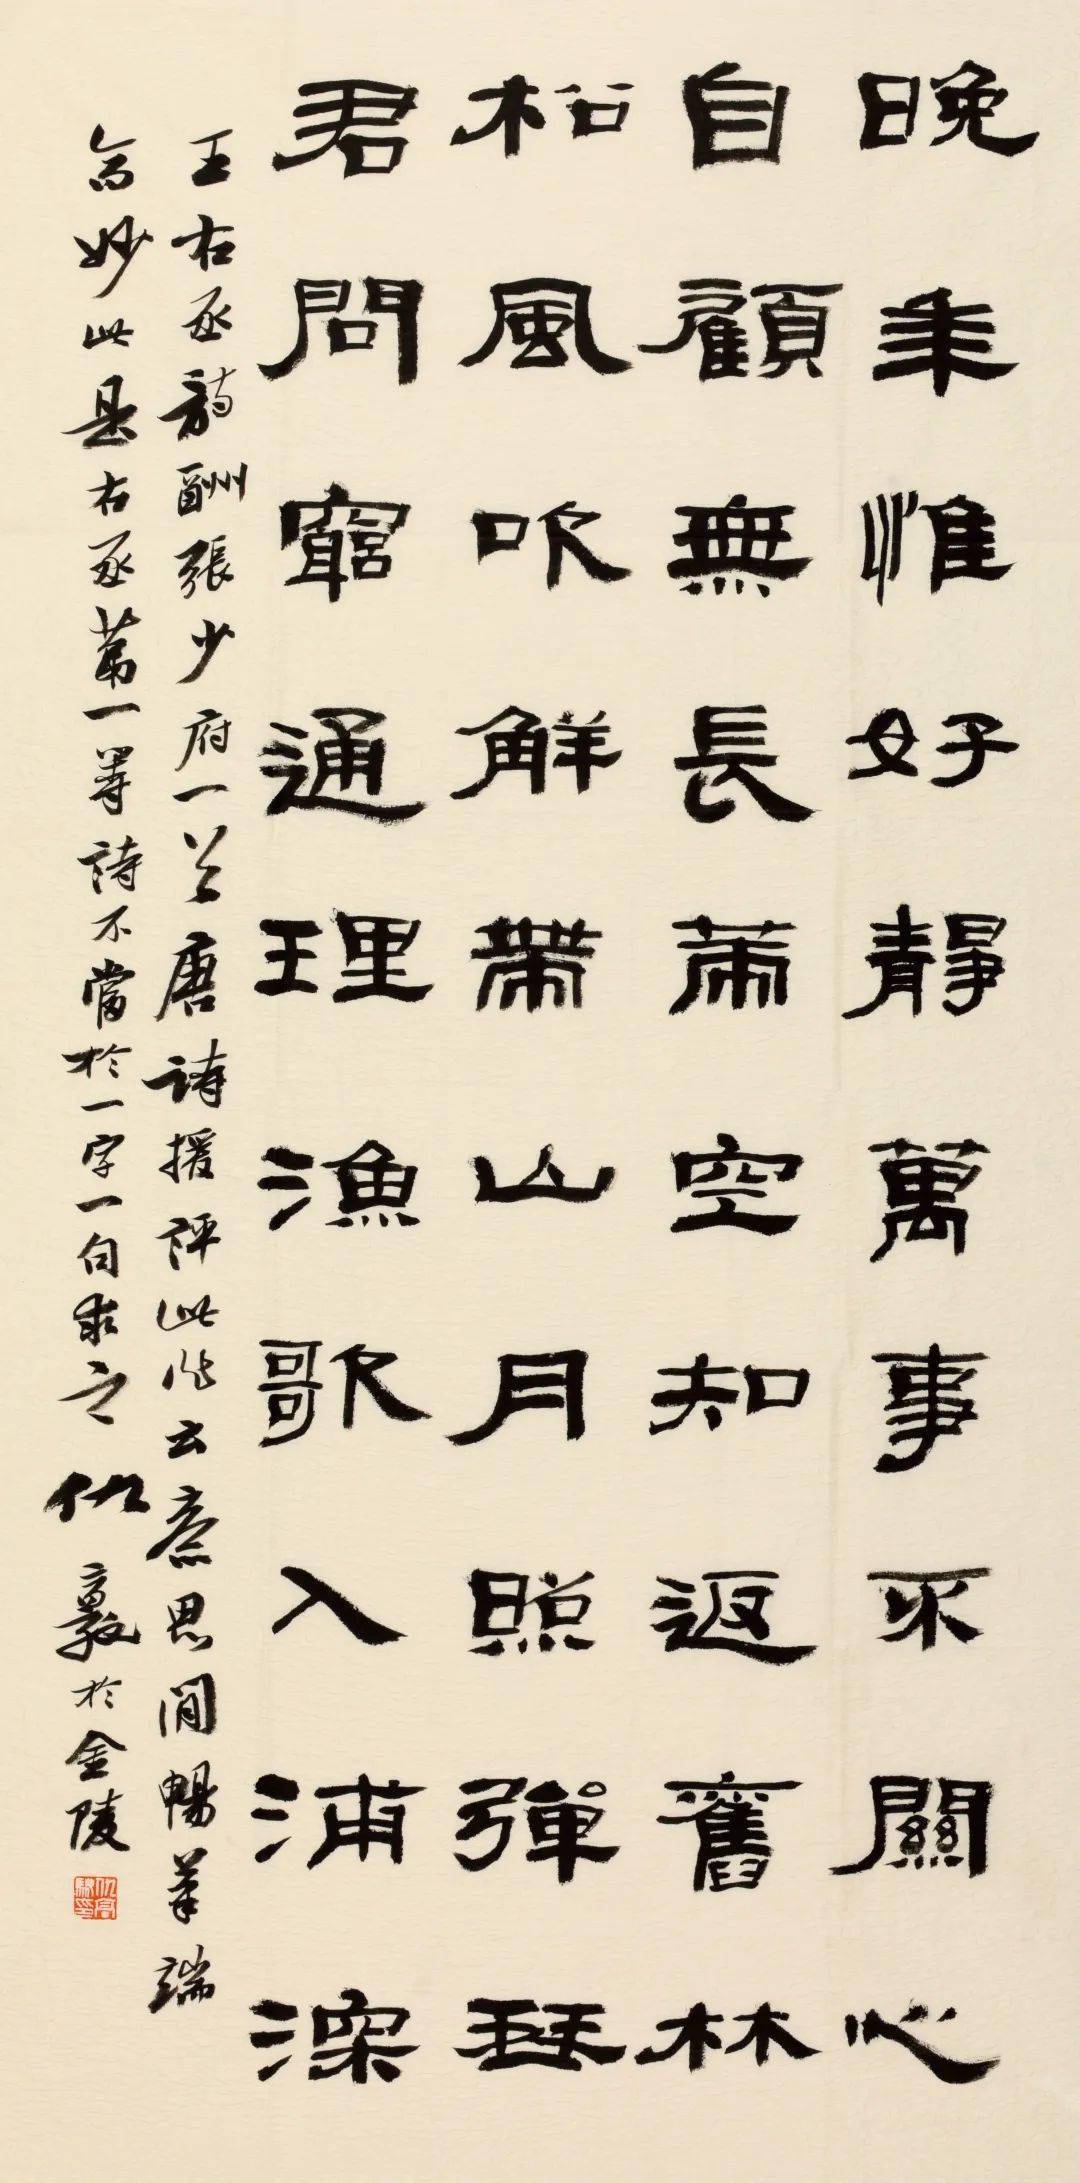 晚年惟好靜萬事不關心
自顧無長策空知返舊林
松風吹解帶山月照彈琴
君問窮通理漁歌入浦深
王右丞詩酬張少府一首唐詩援評此作云意思閒暢筆端
高妙此是右丞第一等詩不當於一字一句求之 仇 於金陵